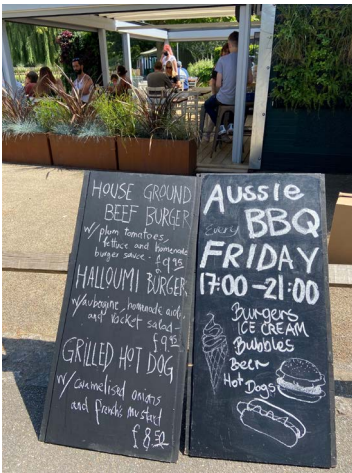 HOUSE GROUND
BEEF BURGER
w/ plum tomatoes,
lettuce and homemade
burger sauce - £9.95
HALLOUMI BURGER
w/aubergine, homemade aioli,
and rocket salad -
£9.45
GRILLED HOT DOG
w/ caramelised onions
and french mustard
£8.50
AUSSIE
Every BBQ
FRIDAY
17:00 - 21:00
Burgers
ICE CREAM
Bubbles
Beer
Hot Dogs